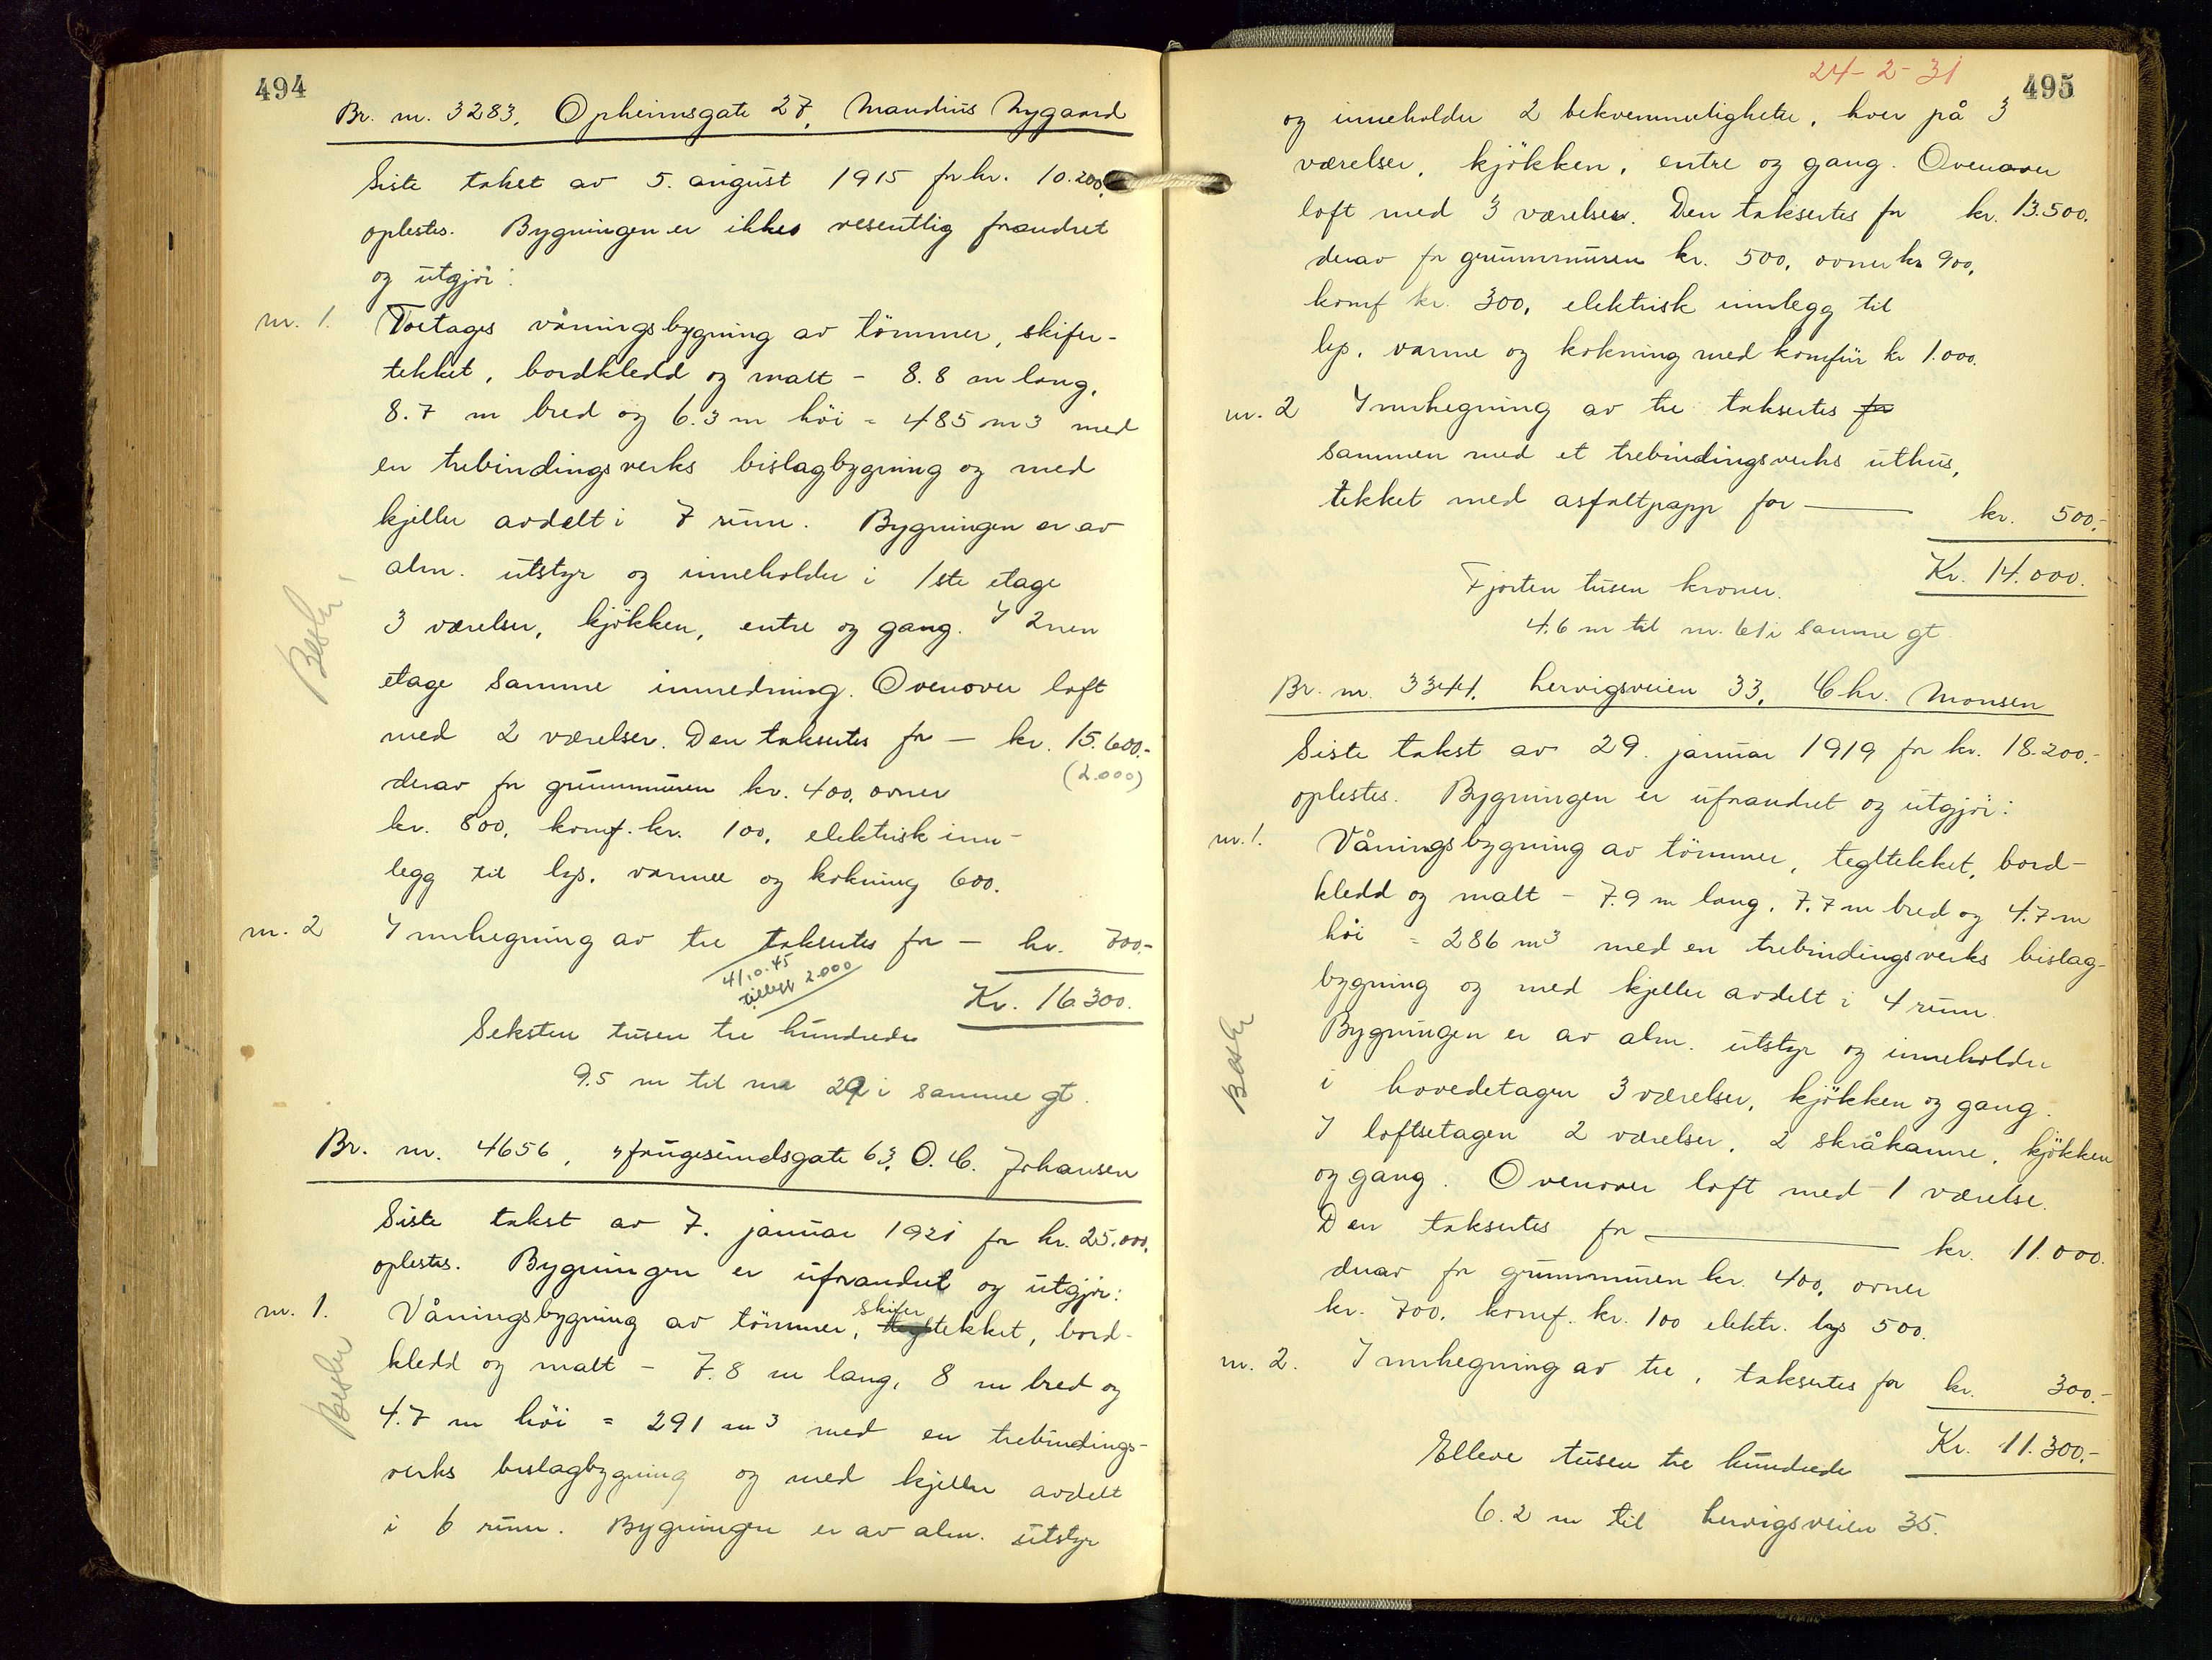 494
Br. nr. 3283. Opheimsgate 27, Maudius Nygaard
Siste takst av 5. august 1915 for kr. 10.200.
oplestes. Bygningen er ikke vesentlig forandret
og utgjör:
nr. 1. Toetages våningsbygning av tömmer, skifer-
tekket, bordkledd og malt - 8.8 m lang,
8.7 m bred og 6.3 m höi = 485 m3 med
en trebindingsverks bislagbygning og med
kjeller avdelt i 7 rum. Bygningen er av
alm. utstyr og inneholder i 1ste etage
3 værelser, kjökken, entre og gang. I 2nen
etage samme innredning. Ovenover loft
med 2 værelser. Den taksertes for - kr. 15.600.-
(2.000)
derav for grunnmuren kr. 400, ovner
kr. 800, komf. kr. 100, elektrisk inn-
legg til lys, varme og kokning 600.
nr. 2 Innhegning av tre taksertes for - kr. 700.-
4/10.45
tillegg 2.000
Kr. 16.300.
Seksten tusen tre hundrede
9.5 m til nr 29 i samme gt.
Br. nr. 4656, Haugesundsgate 63, O. C. Johansen
Siste takst av 7. januar 1921 for kr. 25.000.
oplestes. Bygningen er uforandret og utgjör:
skifer
nr. 1. Våningsbygning av tömmer, tegltekket, bord-
kledd og malt - 7.8 m lang, 8 m bred og
4.7 m höi = 291 m3 med en trebindings-
verks bislagbygning og med kjeller avdelt
i 6 rum. Bygningen er av alm. utstyr
24-2-31
495
og inneholder 2 bekvemmeligheter, hver på 3
værelser, kjökken, entre og gang. Ovenover
loft med 3 værelser. Den taksertes for kr. 13.500.
derav for grunnmuren kr. 500, ovner kr 900,
komf kr. 300, elektrisk innlegg til
lys, varme og kokning med komfür kr 1.000.
nr. 2 Innhegning av tre taksertes for
sammen med et trebindingsverks uthus,
tekket med asfaltpapp for — kr. 500.-
Kr. 14.000.
Fjorten tusen kroner.
4.6 m til nr. 61 i samme gt
Br. nr. 3344. Hervigsveien 33, Chr. Monsen
Siste takst av 29. januar 1919 for kr. 18.200.-
oplestes. Bygningen er uforandret og utgjör:
nr. 1. Våningsbygning av tömmer, tegltekket, bord-
kledd og malt - 7.9 m lang, 7.7 m bred og 4.7 m
höi = 286 m3 med en trebindingsverks bislag-
bygning og med kjeller avdelt i 4 rum
Bygningen er av alm. utstyr og inneholder
i hovedetagen 3 værelser, kjökken og gang.
I loftsetagen 2 værelser, 2 skråkamre, kjökken
og gang. Ovenover loft med 1 værelse.
Den taksertes for — kr. 11.000.
derav for grunnmuren kr. 400, ovner
kr. 700, komf. kr. 100 elektr. lys 500.
nr. 2. Innhegning av tre, taksertes for kr. 300.-
Kr. 11.300.-
Elleve tusen tre hundrede
6.2 m til Hervigsveien 35.